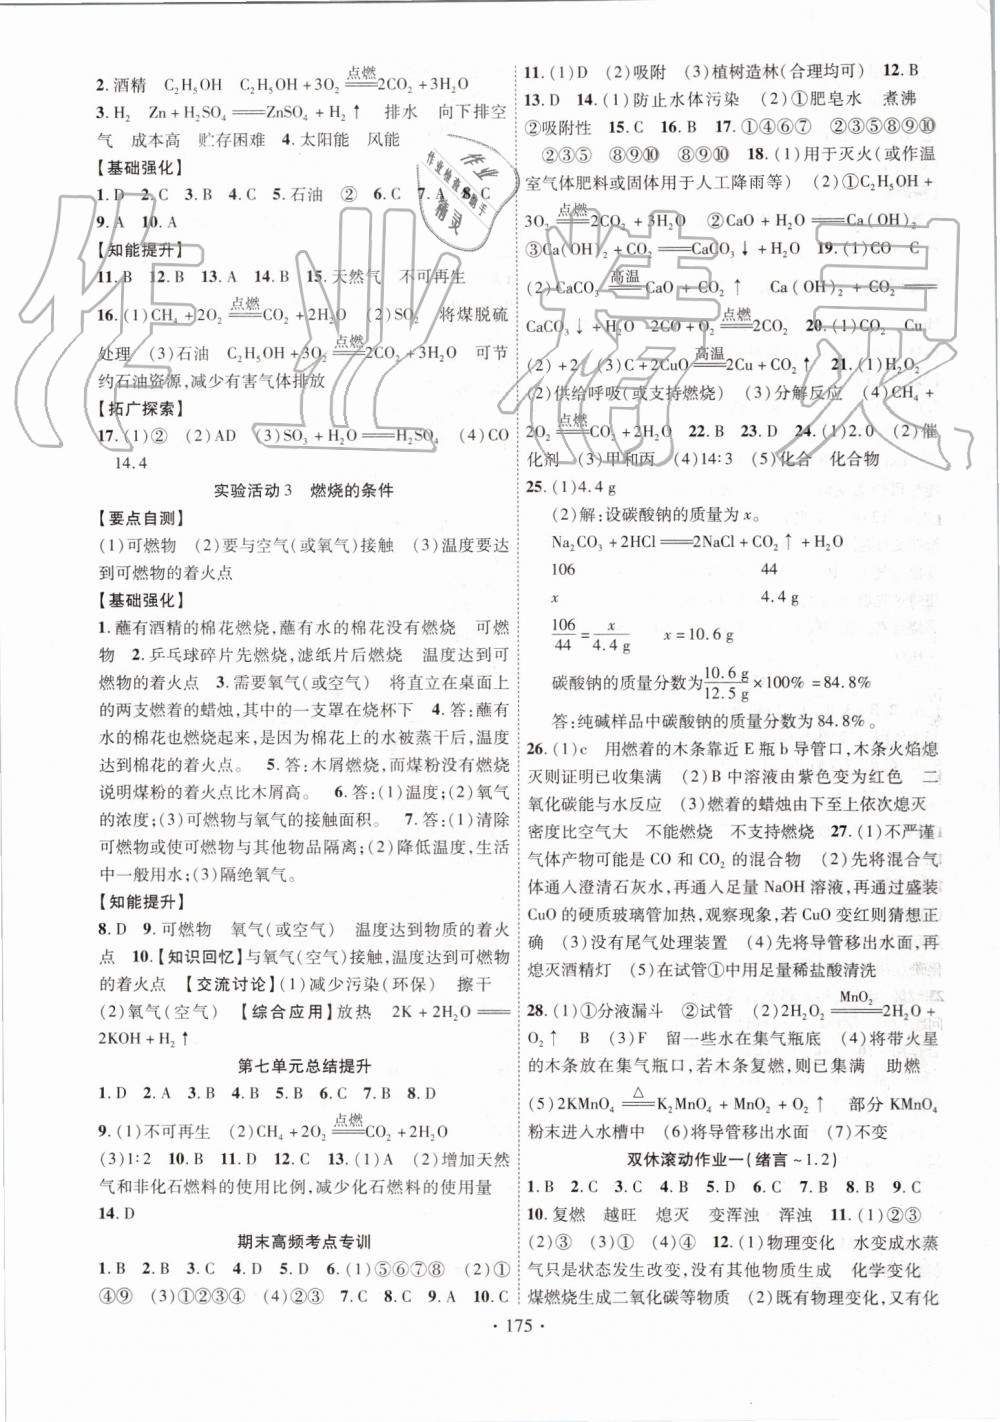 2.酒精　C₂H₅OH　C₂H₅OH+3O₂ 点燃══2CO₂+3H₂O
3.H₂　Zn+H₂SO₄══ZnSO₄+H₂↑　排水　向下排空
气　成本高　贮存困难　4.太阳能　风能
【基础强化】
1.D　2.C　3.B　4.C　5.石油　②　6.C　7.A　8.C
9.A　10.A
【知能提升】
11.B　12.B　13.A　14.B　15.天然气　不可再生
16.(1)CH₄+2O₂ 点燃══CO₂+2H₂O　(2)SO₂　将煤脱硫
处理　(3)石油　C₂H₅OH+3O₂ 点燃══2CO₂+3H₂O　可节
约石油资源,减少有害气体排放
【拓广探索】
17.(1)②　(2)AD　(3)SO₃+H₂O══H₂SO₄　(4)CO
14.4
实验活动3　燃烧的条件
【要点自测】
(1)可燃物　(2)要与空气(或氧气)接触　(3)温度要达
到可燃物的着火点
【基础强化】
1.蘸有酒精的棉花燃烧,蘸有水的棉花没有燃烧　可燃
物　2.乒乓球碎片先燃烧,滤纸片后燃烧　温度达到可
燃物的着火点　3.需要氧气(或空气)　将直立在桌面上
的两支燃着的蜡烛,其中的一支罩在烧杯下　4.答:蘸有
水的棉花也燃烧起来,是因为棉花上的水被蒸干后,温度
达到棉花的着火点。　5.答:木屑燃烧,而煤粉没有燃烧
说明煤粉的着火点比木屑高。　6.答:(1)温度;(2)氧气
的浓度;(3)可燃物与氧气的接触面积。　7.答:(1)清除
可燃物或使可燃物与其他物品隔离;(2)降低温度,生活
中一般用水;(3)隔绝氧气。
【知能提升】
8.D　9.可燃物　氧气(或空气)　温度达到物质的着火
点　10.【知识回忆】与氧气(或空气)接触　温度达到可
燃物的着火点　【交流讨论】(1)减少污染(环保)　擦干
(2)氧气(空气)　【综合应用】放热　2K+2H₂O══
2KOH+H₂↑
第七单元总结提升
1.D　2.A　3.B　4.B　5.B　6.B　7.C　8.D
9.(1)不可再生　(2)CH₄+2O₂ 点燃══CO₂+2H₂O
(3)1:2　10.B　11.D　12.C　13.(1)A　(2)增加天然
气和非化石燃料的使用比例,减少化石燃料的使用量
14.D
期末高频考点专训
1.B　2.B　3.C　4.D　5.D　6.(1)⑤⑥⑦⑧　(2)①
④⑨　(3)①②③④　(4)②③　7.C　8.A　9.C　10.C
11.(1)D　(2)吸附　(3)植树造林(合理均可)　12.B
13.D　14.(1)防止水体污染　(2)①肥皂水　煮沸
②吸附性　15.C　16.B　17.①④⑥⑦　②③⑤⑧⑨⑩
②③⑤　⑧⑨⑩　⑧⑨⑩　18.(1)用于灭火(或作温
室气体肥料或固体用于人工降雨等)　(2)①C₂H₅OH+
3O₂ 点燃══2CO₂+3H₂O　②CaO+H₂O══Ca(OH)₂
③Ca(OH)₂+CO₂══CaCO₃↓+H₂O　19.(1)CO　C
(2)CaCO₃ 高温══CaO+CO₂↑　Ca(OH)₂+CO₂══
CaCO₃↓+H₂O　2CO+O₂ 点燃══2CO₂　20.(1)CO₂　Cu
(2)+2　(3)C+2CuO 高温══2Cu+CO₂↑　21.(1)H₂O₂
(2)供给呼吸(或支持燃烧)　(3)分解反应　(4)CH₄+
2O₂ 点燃══CO₂+2H₂O　22.B　23.D　24.(1)2.0　(2)催
化剂　(3)甲和丙　(4)14:3　(5)化合　化合物
25.(1)4.4 g
(2)解:设碳酸钠的质量为x。
Na₂CO₃+2HCl══2NaCl+CO₂↑+H₂O
106　44
x　4.4 g
106/44=x/4.4 g　x=10.6 g
碳酸钠的质量分数为10.6 g/12.5 g×100%=84.8%
答:纯碱样品中碳酸钠的质量分数为84.8%。
26.(1)c　用燃着的木条靠近E瓶b导管口,木条火焰熄
灭则证明已收集满　(2)B中溶液由紫色变为红色　二
氧化碳能与水反应　(3)燃着的蜡烛由下至上依次熄灭
密度比空气大　不能燃烧　不支持燃烧　27.(1)不严谨
气体产物可能是CO和CO₂的混合物　(2)先将混合气
体通入澄清石灰水,再通入足量NaOH溶液,再通过盛装
CuO的硬质玻璃管加热,观察现象,若CuO变红则猜想正
确　(3)没有尾气处理装置　(4)先将导管移出水面,再
熄灭酒精灯　(5)在试管①中用足量稀盐酸清洗
28.(1)①分液漏斗　②试管　(2)2H₂O₂ MnO₂══2H₂O+
O₂↑　B　(3)F　留一些水在集气瓶底　(4)将带火星
的木条放在集气瓶口,若木条复燃,则已集满　助燃
(5)2KMnO₄ △══K₂MnO₄+MnO₂+O₂↑　部分KMnO₄
粉末进入水槽中　(6)将导管移出水面　(7)不变
双休滚动作业一(绪言~1.2)
1.B　2.C　3.C　4.B　5.D　6.C　7.B　8.B　9.C
10.复燃　越旺　熄灭　变浑浊　浑浊　11.(1)②③
(2)③　(3)①　(4)④　12.(1)物理变化　水变成水蒸
气只是状态发生改变,没有其他物质生成　化学变化
煤燃烧生成二氧化碳等物质　(2)既有物理变化,又有化
·175·
作业精灵
作业
作业检查小助手
精灵